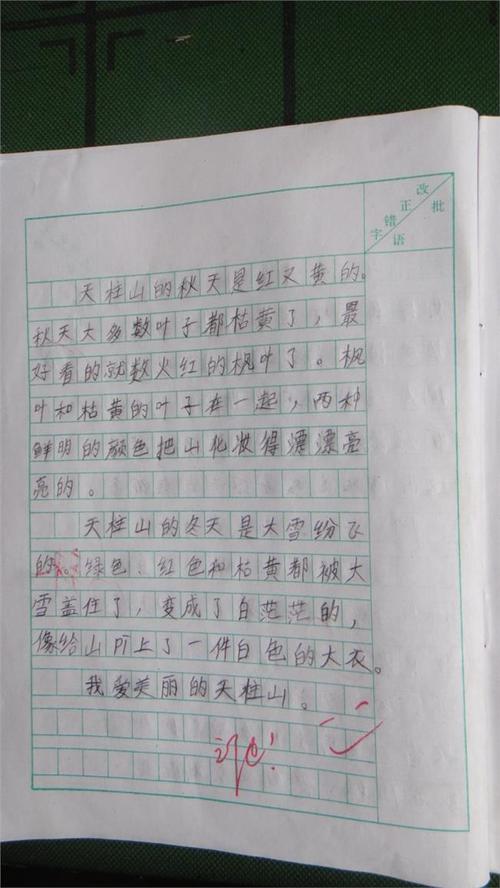 改正错字
批语
天柱山的秋天是红又黄的。
秋天大多数叶子都枯黄了，最
好看的就数火红的枫叶了。枫
叶和枯黄的叶子在一起，两种
鲜明的颜色把山化妆得漂漂亮
亮的。
天柱山的冬天是大雪纷飞
的。绿色 红色和枯黄都被大
雪盖住了，变成了白茫茫的，
像给山pī上了一件白色的大衣。
我爱美丽的天柱山。